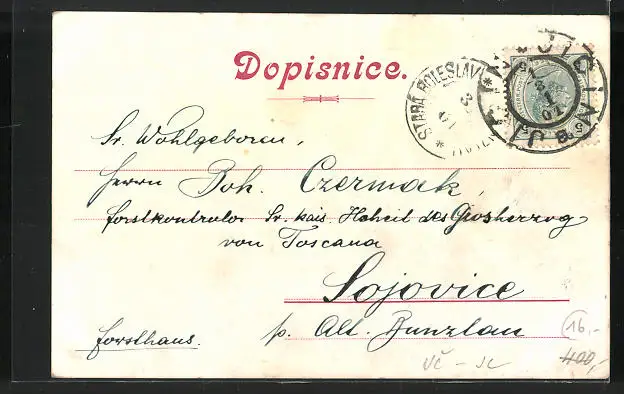 Dopisnice.
STARÁ BOLESLAV
JIČÍN
Sr. Wohlgeboren,
Herrn Joh. Czermak,
Forstkontrolor Sr. kais. Hoheit des Grosherzog
von Toscana
Sojovice
Forsthaus. p. Alt. Bunzlau
16,-
VČ - JC
400,-